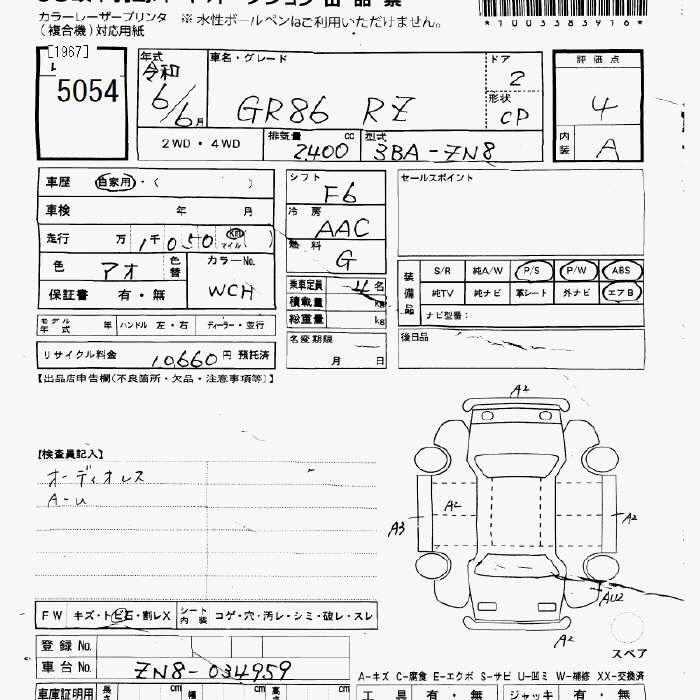 カラーレーザープリンタ ※水性ボールペンはご利用いただけません。
（複合機）対応用紙
*1003585916*
[1967]
5054
年式 令和 6/6月
車名・グレード GR86 RZ
ドア 2
形状 CP
評価点 4
内装 A
2WD・4WD
排気量 2400 cc
型式 3BA-ZN8
車歴 自家用・( )
車検 年 月
走行 万 1千050 km マイル ( )
色 アオ 色替
カラーNo. WCH
保証書 有・無
シフト F6
冷房 AAC
燃料 G
乗車定員 4名
積載量 kg
総重量 kg
セールスポイント
装備品 S/R 純A/W P/S P/W ABS
純TV 純ナビ 革シート 外ナビ エアB
ナビ型壁：
モデル年式 年 ハンドル 左・右 ディーラー・並行
名変期限 月 日
後日品
リサイクル料金 10660円 預託済
【出品店申告欄(不良箇所・欠品・注意事項等)】
【検査員記入】
オーディオレス
A-U
A2
A3
A2
A2
AU2
A2
スペア
FW キズ・トビE・割レX
シート内装 コゲ・穴・汚レ・シミ・破レ・スレ
登録No.
車台No. ZN8-034959
A-キズ C-腐食 E-エクボ S-サビ U-凹ミ W-補修 XX-交換済
車庫証明用 長さ cm 幅 cm 高さ cm
工具 有・無 ジャッキ 有・無